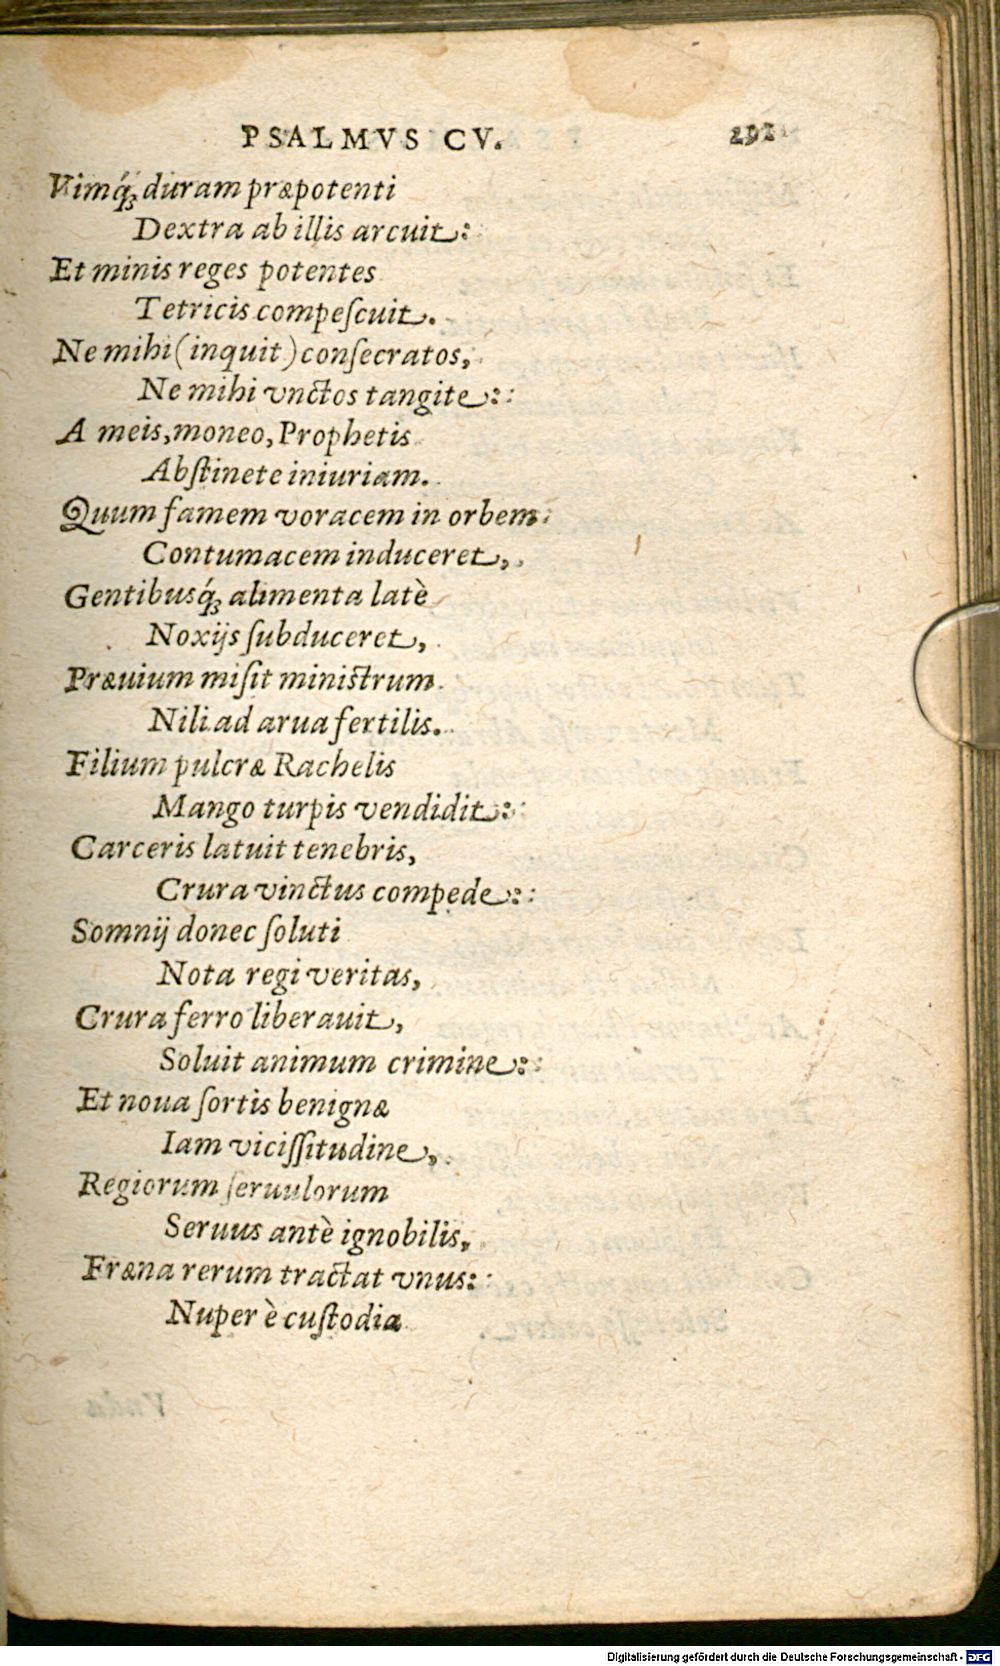 PSALMVS CV. 291
Vimq́ꝫ duram præpotenti
Dextra ab illis arcuit:
Et minis reges potentes
Tetricis compeſcuit.
Ne mihi (inquit) conſecratos,
Ne mihi vnctos tangite:
A meis, moneo, Prophetis
Abſtinete iniuriam.
Quum famem voracem in orbem
Contumacem induceret,
Gentibusq́ꝫ alimenta latè
Noxijs ſubduceret,
Præuium miſit miniſtrum
Nili ad arua fertilis.
Filium pulcræ Rachelis
Mango turpis vendidit:
Carceris latuit tenebris,
Crura vinctus compede:
Somnij donec ſoluti
Nota regi veritas,
Crura ferro liberauit,
Soluit animum crimine:
Et noua ſortis benignæ
Iam viciſſitudine,
Regiorum ſeruulorum
Seruus antè ignobilis,
Fræna rerum tractat vnus:
Nuper è cuſtodia
Digitalisierung gefördert durch die Deutsche Forschungsgemeinschaft - DFG